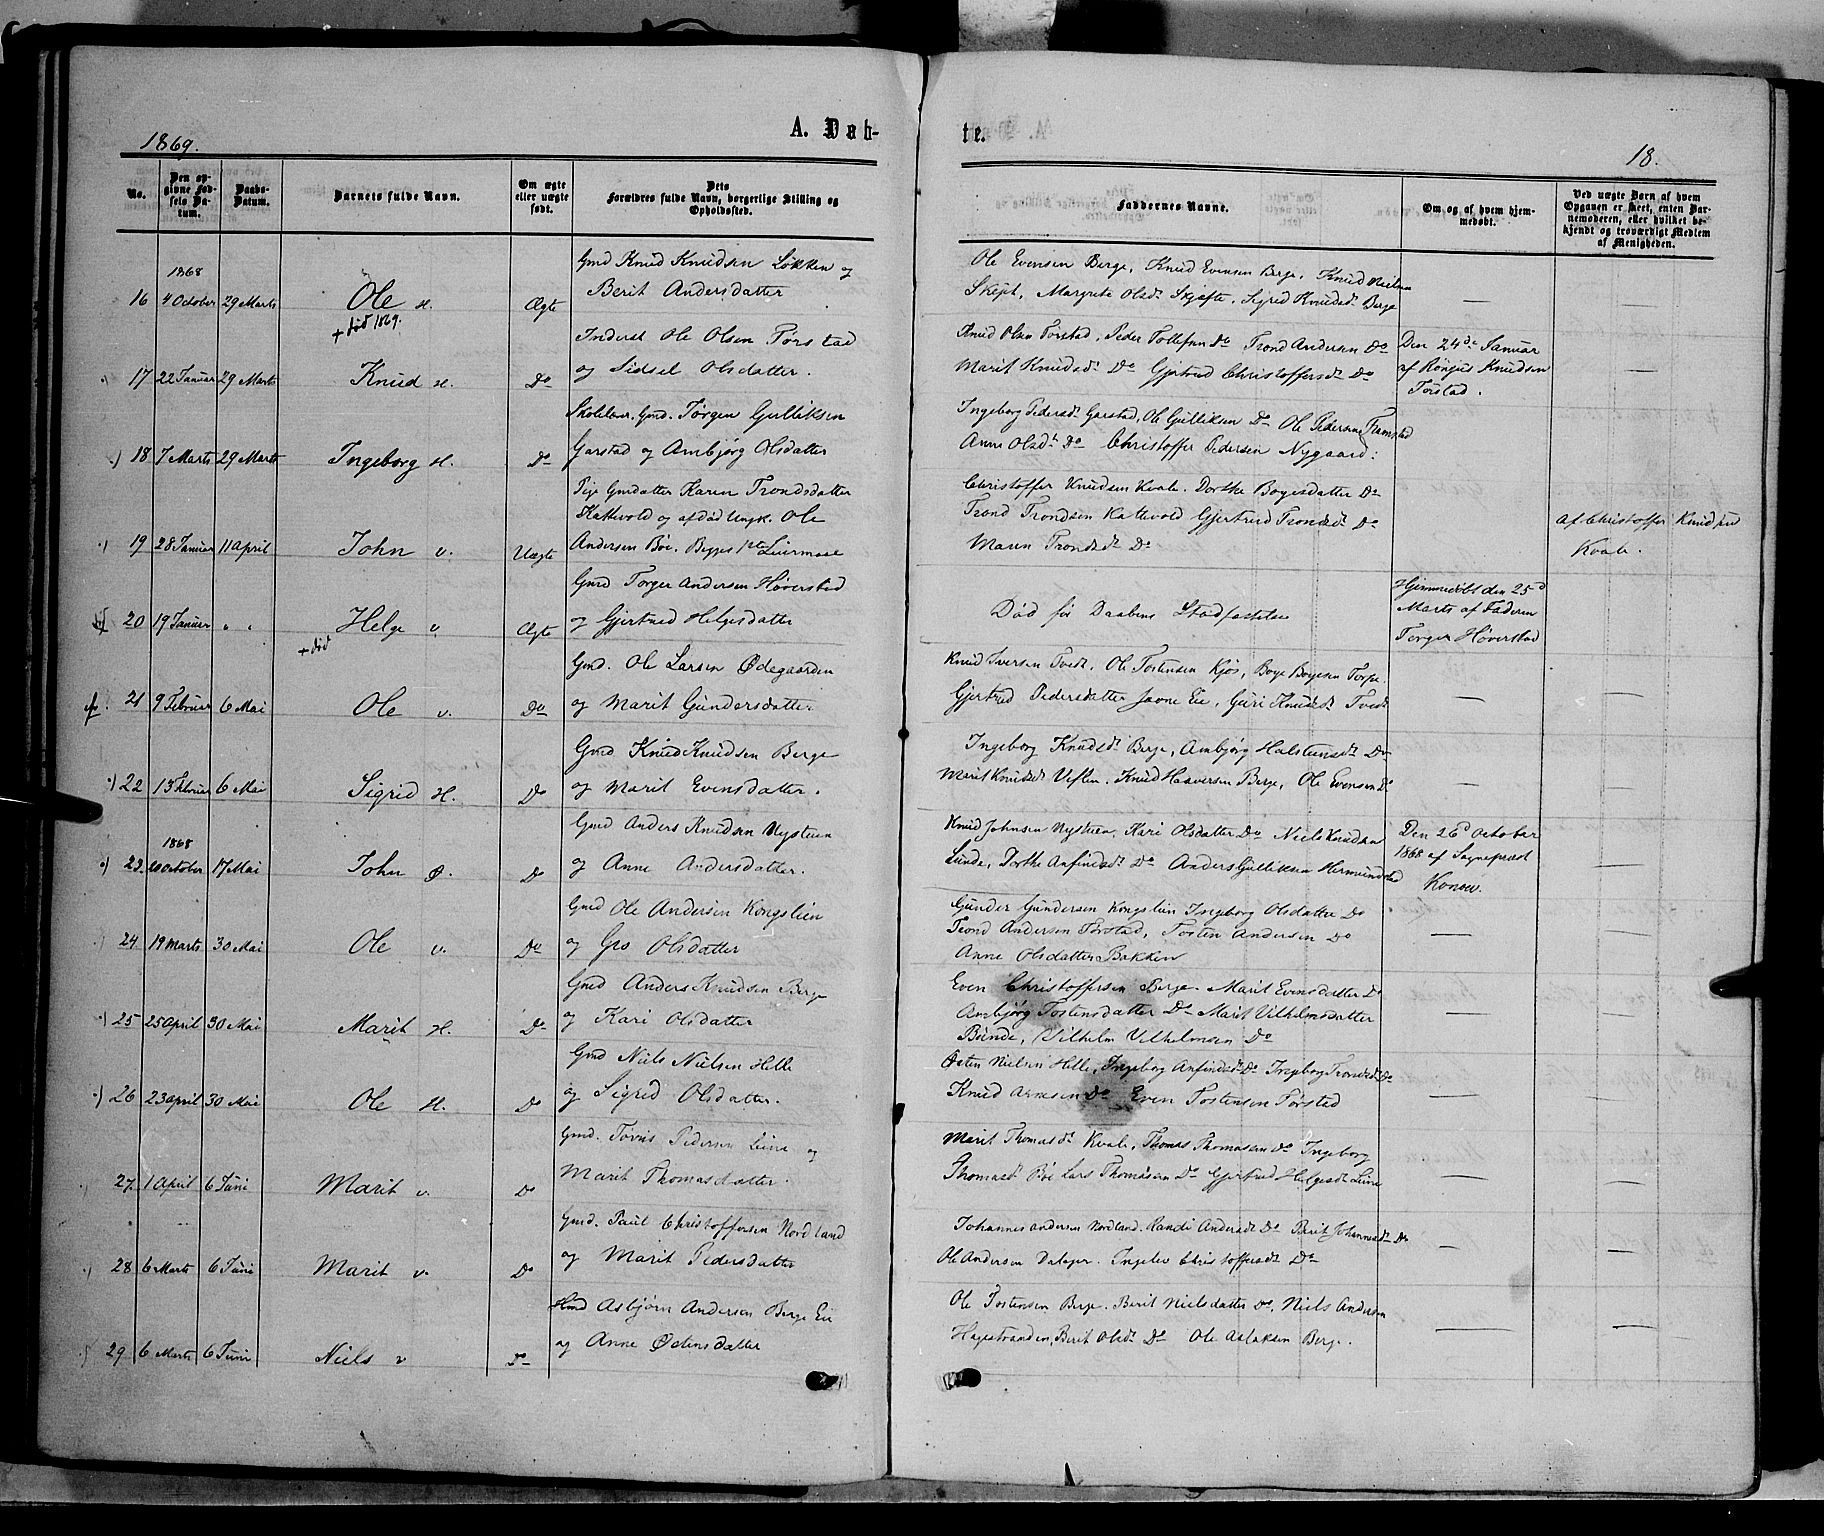 1869.
A. Døb-
te.
18.
No.
Den op-
givne Fød-
sels Da-
tum.
Daabs-
Datum.
Barnets fulde Navn.
Om ægte
eller uægte
født.
Dets
Forældres fulde Navn, borgerlige Stilling og
Opholdssted.
Faddernes Navne.
Om og af hvem hjem-
medøbt.
Ved uægte Barn af hvem
Opgaven er skeet, enten Bar-
nemoderen, eller hvilket be-
kjendt og troværdigt Medlem
af Menigheden.
1868
16 4 October 29 Marts Ole H. Ægte
+ død 1869.
Gmd Knud Knudsen Løkken og
Berit Andersdatter
Ole Evensen Berge, Knud Evensen Berge, Knud Nielsen
Skejt, Margrete Olsdt Skjefte, Sigrid Knudsdt Berge
—
17 22 Januar 29 Marts Knud H. Do
Inderst Ole Olsen Torstad
og Sidsel Olsdatter.
Knud Olsen Torstad, Peder Tollefsen Do Trond Andersen Do
Marit Knudsdt Do Gjertrud Christoffersdt Do
Den 24de Januar
af Rønjus Knudsen
Torstad.
—
18 7 Marts 29 Marts Ingeborg H. Do
Skolelær. Gmd. Jørgen Gulliksen
Garstad og Ambjørg Olsdatter
Ingeborg Pedersdt Garstad, Ole Gulliksen Do Ole Pedersen Framstad
Anne Olsdt Do Christoffer Pedersen Nygaard.
19 28 Januar 11 April John v. Uægte
Pige Gmdatter Karen Trondsdatter
Kattevold og afdød Ungk. Ole
Andersen Bøe. Begges 1ste Leiermaal
Christoffer Knudsen Kvale. Dorthe Boyesdatter Do
Trond Trondsen Kattevold Gjertrud Trondsdt Do
Maren Trondsdt Do
Af Christoffer Knudsen
Kvale.
20 19 Januar " " Helge v. Ægte
+ død
Gmd Torger Andersen Høverstad
og Gjertrud Helgesdatter
Død før Daabens Stadfæstelse
Hjemmedøbt den 25d
Marts af Faderen
Torger Høverstad
21 9 Februar 6 Mai Ole v. Do
Gmd. Ole Larsen Ødegaarden
og Marit Gundersdatter
Knud Iversen Tvedt, Ole Tostensen Kjøs, Boye Boyesen Torpe.
Gjertrud Pedersdatter Javne Eie, Guri Knudsdt Tvedt
— —
22 13 Februar 6 Mai Sigrid H. Do
Gmd Knud Knudsen Berge
og Marit Evensdatter.
Ingeborg Knudsdt Berge, Ambjørg Halstensdt Do
Marit Knudsdt Veflen. Knud Haaversen Berge, Ole Evensen Do
— —
1868
23. 20 October 17 Mai John Ø. Do
Gmd Anders Knudsen Nysteien
og Anne Andersdatter.
Knud Johnsen Nysteien, Kari Olsdatter Do Niels Knudsen
Lunde, Dorthe Anfindsdt Do Anders Gulliksen Hermundstad
Den 26d October
1868 af Sognepræst
Konow.
—
24 19 Marts 30 Mai Ole v. Do
Gmd Ole Andersen Kongslien
og Gro Olsdatter
Gunder Gundersen Kongslien Ingeborg Olsdatter Do
Trond Andersen Torstad, Tosten Andersen Do
Anne Olsdatter Bakken
— —
25 25 April 30 Mai Marit H. Do
Gmd Anders Knudsen Berge
og Kari Olsdatter
Even Christoffersen Berge. Marit Evensdatter Do
Ambjørg Tostensdatter Do Marit Vilhelmsdatter
Bunde, Vilhelm Vilhelmsen Do
— —
26 23 April 30 Mai Ole H. Do
Gmd Niels Nielsen Helle
og Sigrid Olsdatter.
Østen Nielsen Helle, Ingeborg Anfindsdt Do Ingeborg Trondsdt Do
Knud Arnesen Do Even Tostensen Torstad
— —
27. 1 April 6 Juni Marit v. Do
Gmd. Tønis Pedersen Leine og
Marit Thomasdatter.
Marit Thomasdt Kvale, Thomas Thomasen Do Ingeborg
Thomasdt Bøe Lars Thomasen Do Gjertrud Helgesdt Leine
— —
28 6 Marts 6 Juni Marit v. Do
Gmd. Paul Christoffersen Nordland
og Marit Pedersdatter
Johannes Andersen Nordland. Randi Andersdt Do Berit Johannesdt Do
Ole Andersen Dalager. Ingelev Christoffersdt Do
— —
29 6 Marts 6 Juni Niels v Do
Hmd Asbjørn Andersen Berge Eie
og Anne Østensdatter
Ole Tostensen Berge. Berit Nielsdatter Do, Niels Andersen
Hagestranden, Berit Olsdt Do Ole Aslaksen Berge.
— —